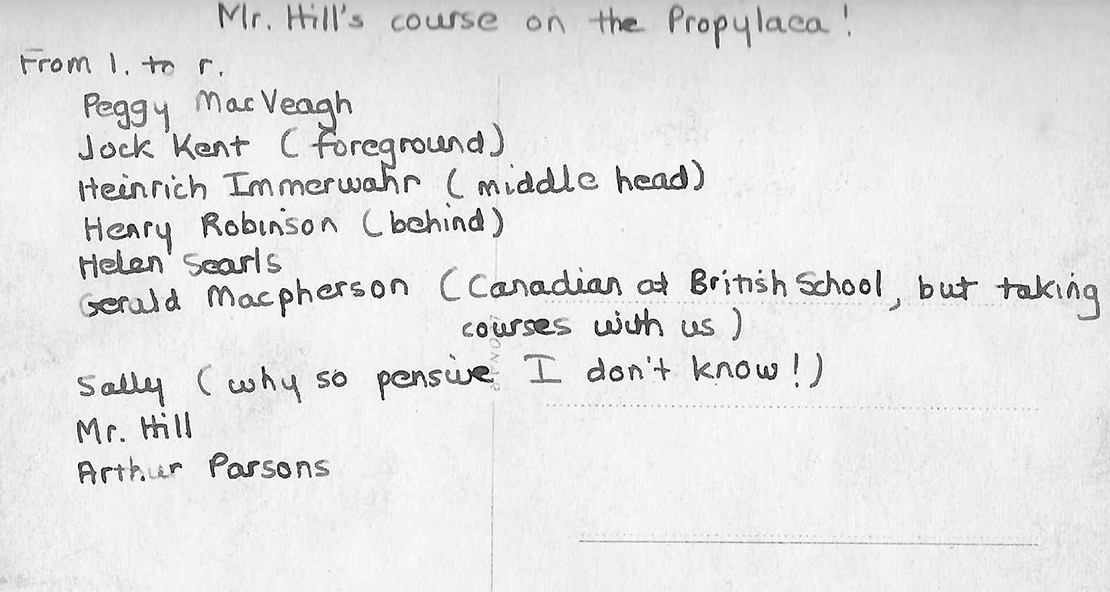 Mr. Hill's course on the Propylaea!
From l. to r.
Peggy MacVeagh
Jock Kent (foreground)
Heinrich Immerwahr (middle head)
Henry Robinson (behind)
Helen Searls
Gerald Macpherson (Canadian at British School, but taking
courses with us)
Sally (why so pensive I don't know!)
Mr. Hill
Arthur Parsons